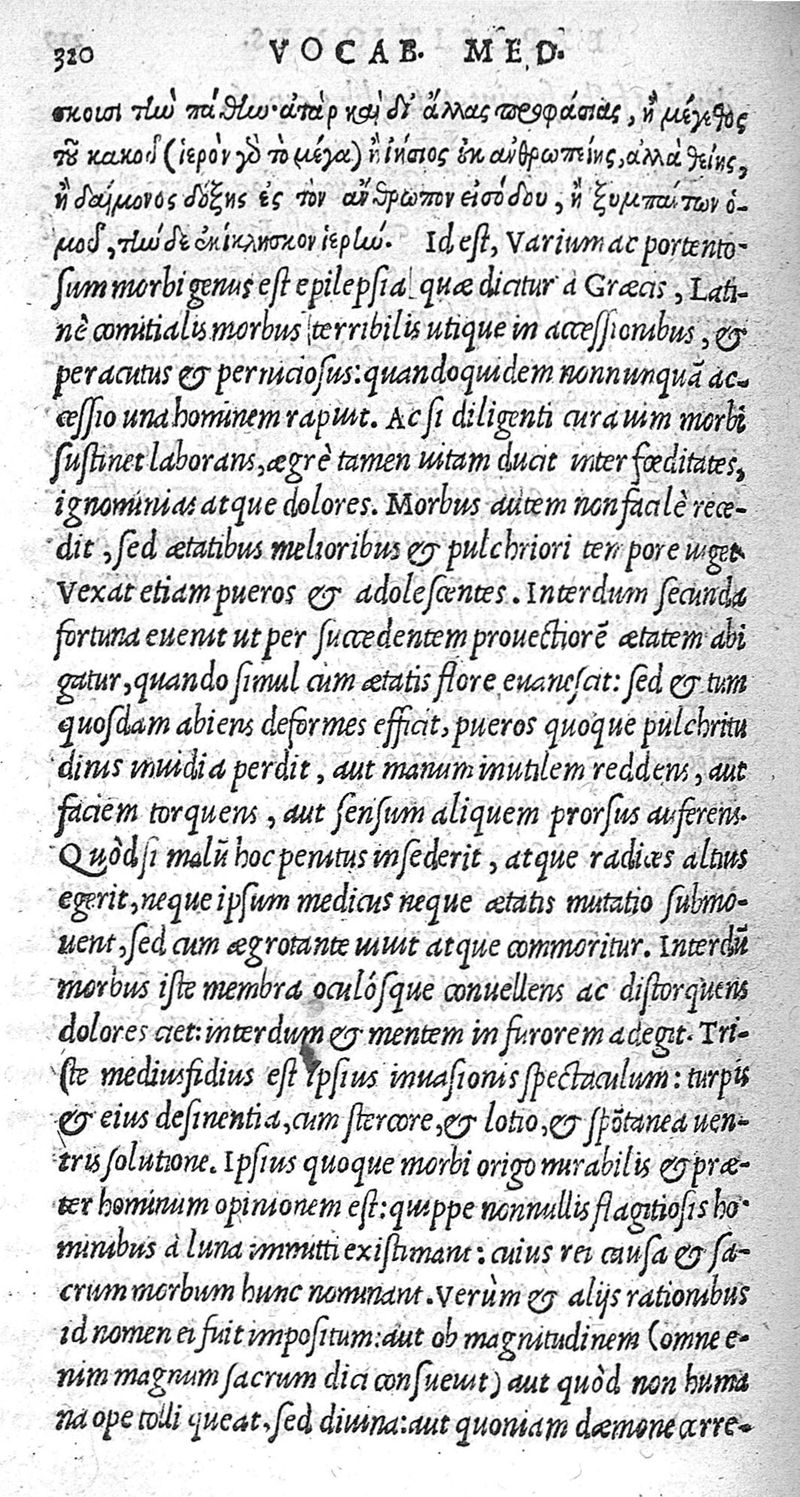 320 VOCAB. MED.
σκουσι τὴν πάθην· ἀτὰρ καὶ δι' ἄλλας προφάσιας, ἢ μέγεθος
τοῦ κακοῦ (ἱερὸν γὰρ τὸ μέγα) ἢ ἰήσιος οὐκ ἀνθρωπείης, ἀλλὰ θείης,
ἢ δαίμονος δόξης ἐς τὸν ἄνθρωπον εἰσόδου, ἢ ξυμπάντων ὁ-
μοῦ, τήνδε ἐκίκλησκον ἱερήν. Id est, Varium ac portento-
sum morbi genus est epilepsia quæ dicitur à Græcis, Lati-
nè comitialis morbus terribilis utique in accessionibus, &
peracutus & perniciosus: quandoquidem nonnunquã ac-
cessio una hominem rapuit. Ac si diligenti cura uim morbi
sustinet laborans, ægrè tamen uitam ducit inter fœditates,
ignominias atque dolores. Morbus autem non facilè rece-
dit, sed ætatibus melioribus & pulchriori tempore uiget.
Vexat etiam pueros & adolescentes. Interdum secunda
fortuna euenit ut per succedentem prouectiorẽ ætatem abi
gatur, quando simul cum ætatis flore euanescit: sed & tum
quosdam abiens deformes efficit, pueros quoque pulchritu
dinis inuidia perdit, aut manum inutilem reddens, aut
faciem torquens, aut sensum aliquem prorsus auferens.
Quòd si malũ hoc penitus insederit, atque radices altius
egerit, neque ipsum medicus neque ætatis mutatio submo-
uent, sed cum ægrotante uiuit atque commoritur. Interdũ
morbus iste membra oculósque conuellens ac distorquens
dolores ciet: interdum & mentem in furorem adegit. Tri-
ste mediusfidius est ipsius inuasionis spectaculum: turpis
& eius desinentia, cum stercore, & lotio, & spõtanea uen-
tris solutione. Ipsius quoque morbi origo mirabilis & præ-
ter hominum opinionem est: quippe nonnullis flagitiosis ho-
minibus à luna immitti existimant: cuius rei causa & sa-
crum morbum hunc nominant. Verùm & alijs rationibus
id nomen ei fuit impositum: aut ob magnitudinem (omne e-
nim magnum sacrum dici consueuit) aut quòd non huma
na ope tolli queat, sed diuina: aut quoniam dæmone arre-